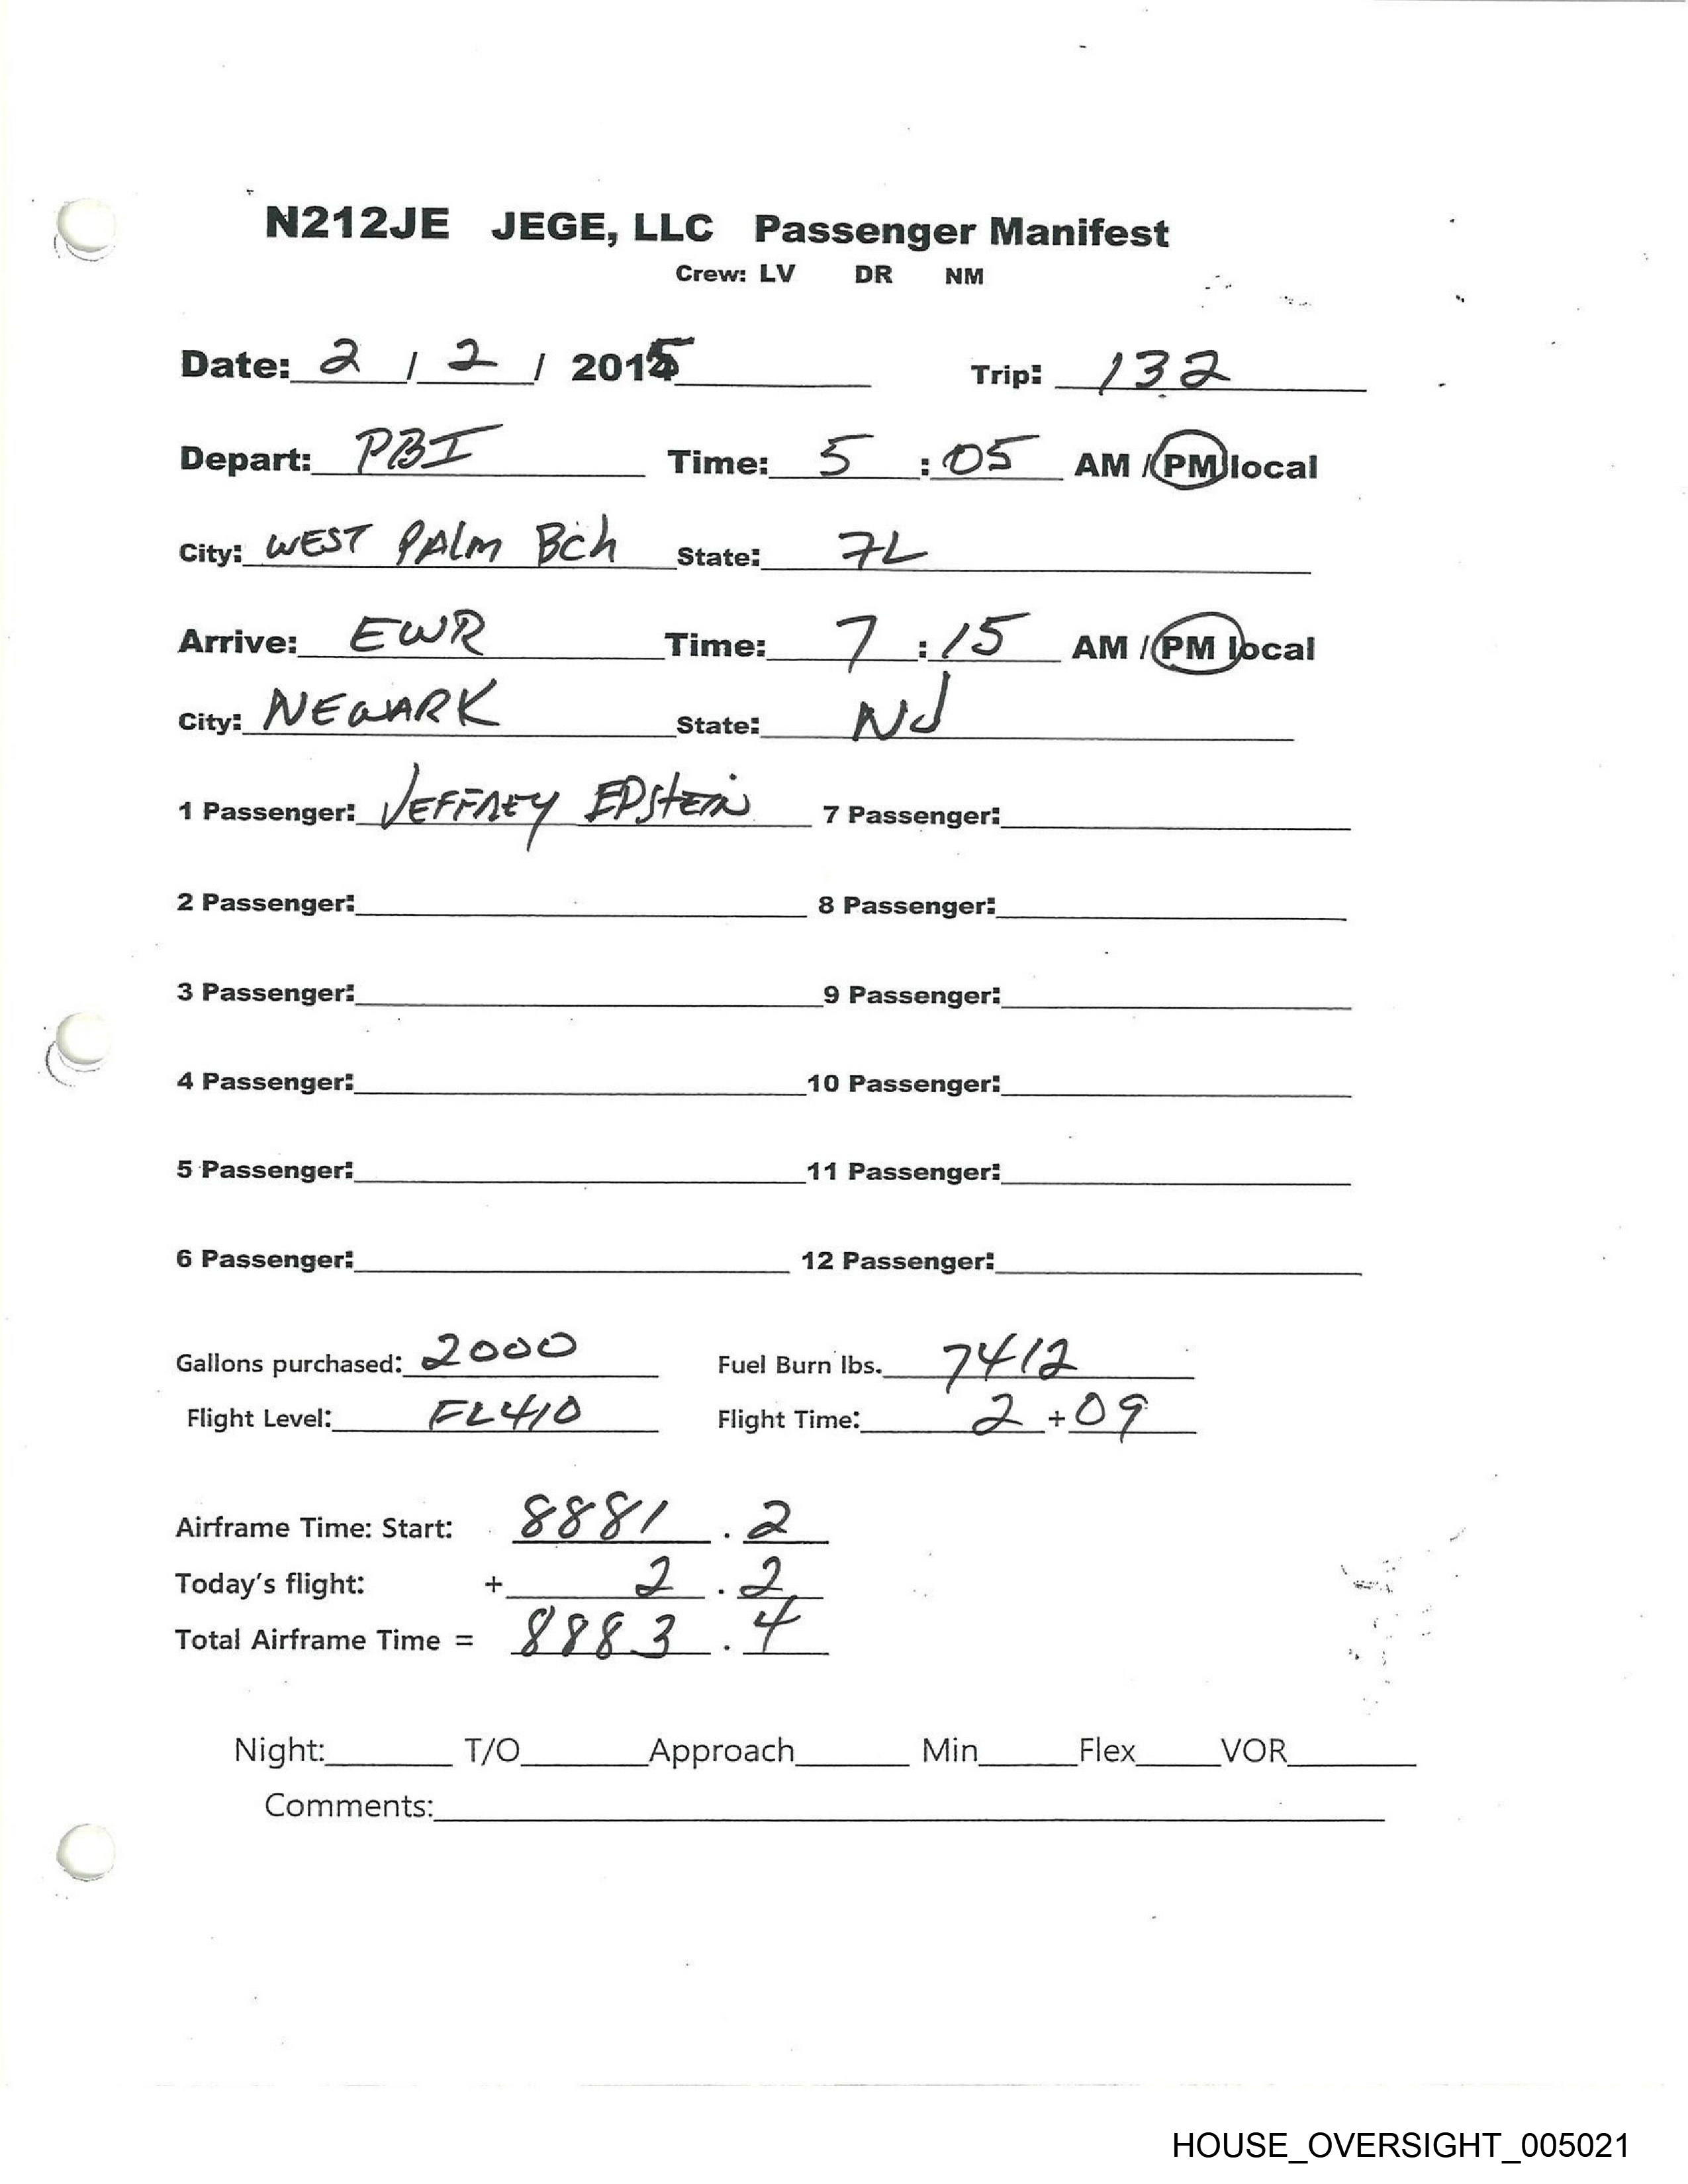 N212JE JEGE, LLC Passenger Manifest
Crew: LV DR NM
Date: 2 / 2 / 2015 Trip: 132
Depart: PBI Time: 5 : 05 AM / PM local
City: WEST PAlm Bch State: FL
Arrive: EWR Time: 7 : 15 AM / PM local
City: NEWARK State: NJ
1 Passenger: JEFFREY EPStEiN 7 Passenger:
2 Passenger: 8 Passenger:
3 Passenger: 9 Passenger:
4 Passenger: 10 Passenger:
5 Passenger: 11 Passenger:
6 Passenger: 12 Passenger:
Gallons purchased: 2000 Fuel Burn lbs. 7412
Flight Level: FL410 Flight Time: 2 + 09
Airframe Time: Start: 8881 . 2
Today's flight: + 2 . 2
Total Airframe Time = 8883 . 4
Night: T/O Approach Min Flex VOR
Comments:
HOUSE_OVERSIGHT_005021